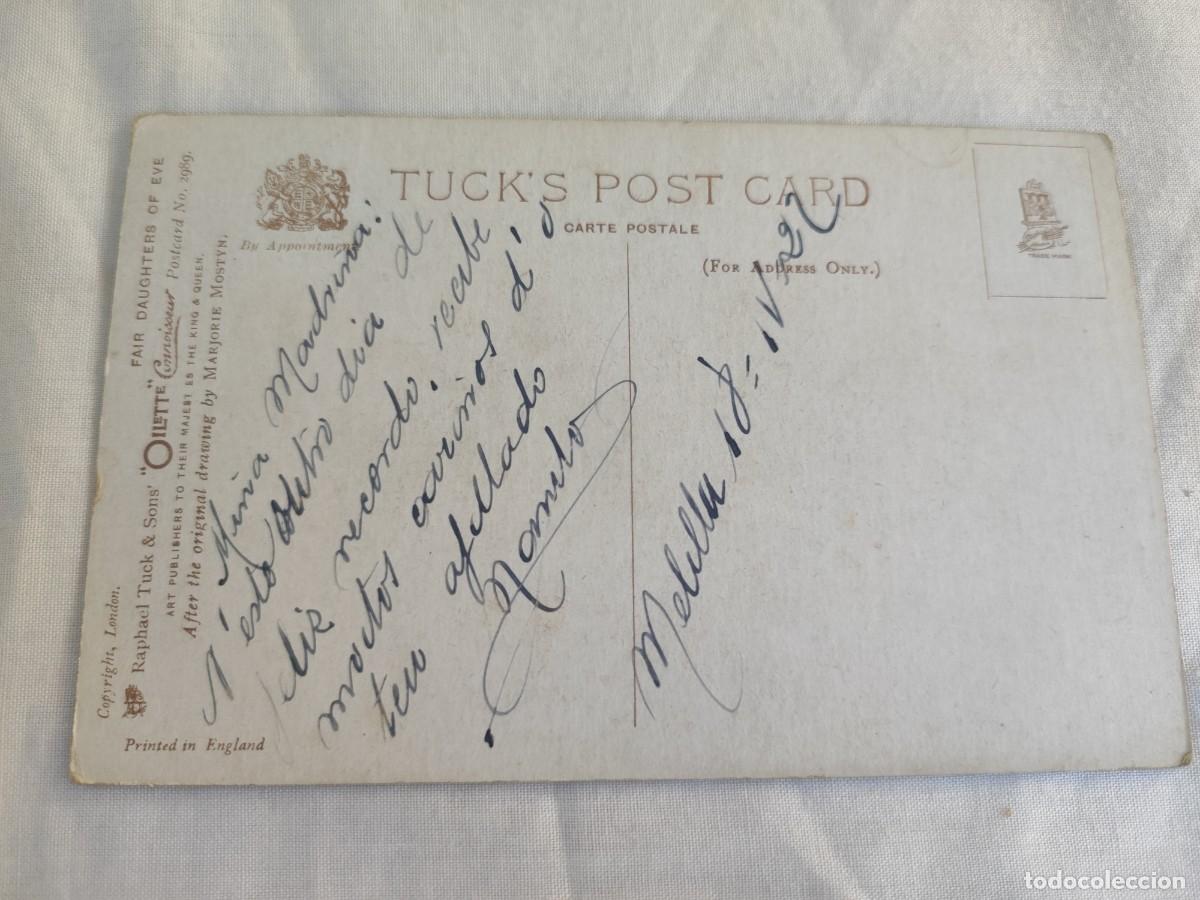 TUCK'S POST CARD
CARTE POSTALE
(FOR ADDRESS ONLY.)
By Appointment
TRADE MARK
FAIR DAUGHTERS OF EVE
Raphael Tuck & Sons' "OILETTE" Connoisseur Postcard No. 2989.
ART PUBLISHERS TO THEIR MAJESTIES THE KING & QUEEN.
After the original drawing by MARJORIE MOSTYN.
Copyright, London.
Printed in England
Miña Madriña:
N'este outro dia de
feliz recordo, recibe
moitos cariños d'o
teu afillado
Ramito
Melilla 18-IV-22
todocoleccion